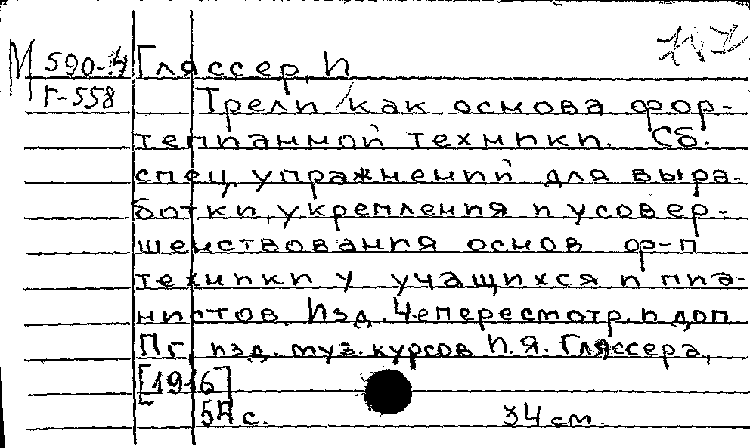 М 590-4 Гляссер, И
Г-558 Трели как основа фор-
тепианной техники. Сб.
спец. упражнений для выра-
ботки, укрепления и усовер-
шенствования основ ф-п
техники у учащихся и пиа-
нистов. Изд. 4е пересмотр. и доп
Пг, изд. муз. курсов И. Я. Гляссера,
[1916]
с. 34 см.